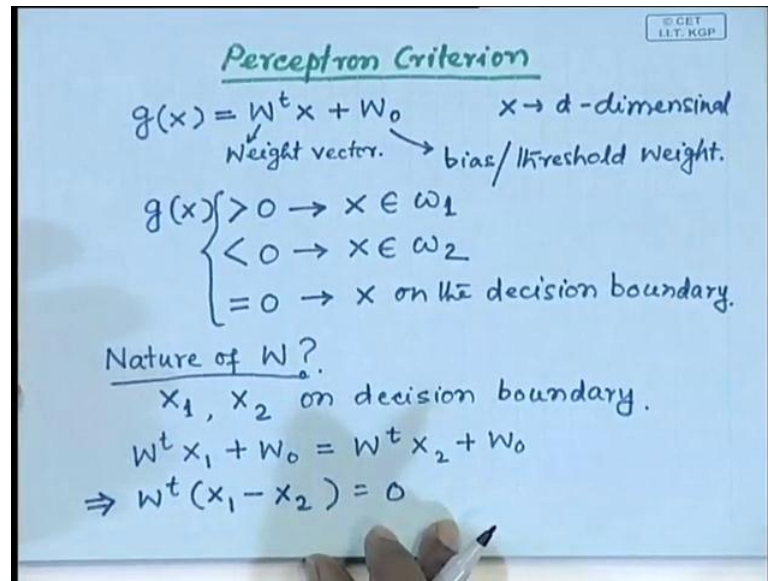 © CET
I.I.T. KGP
Perceptron Criterion
g(x) = W^t x + W₀ x → d-dimensinal
Weight vector. bias/threshold weight.
g(x) { > 0 → x ∈ ω₁
< 0 → x ∈ ω₂
= 0 → x on the decision boundary.
Nature of W?
x₁, x₂ on decision boundary.
W^t x₁ + W₀ = W^t x₂ + W₀
⇒ W^t (x₁ - x₂) = 0